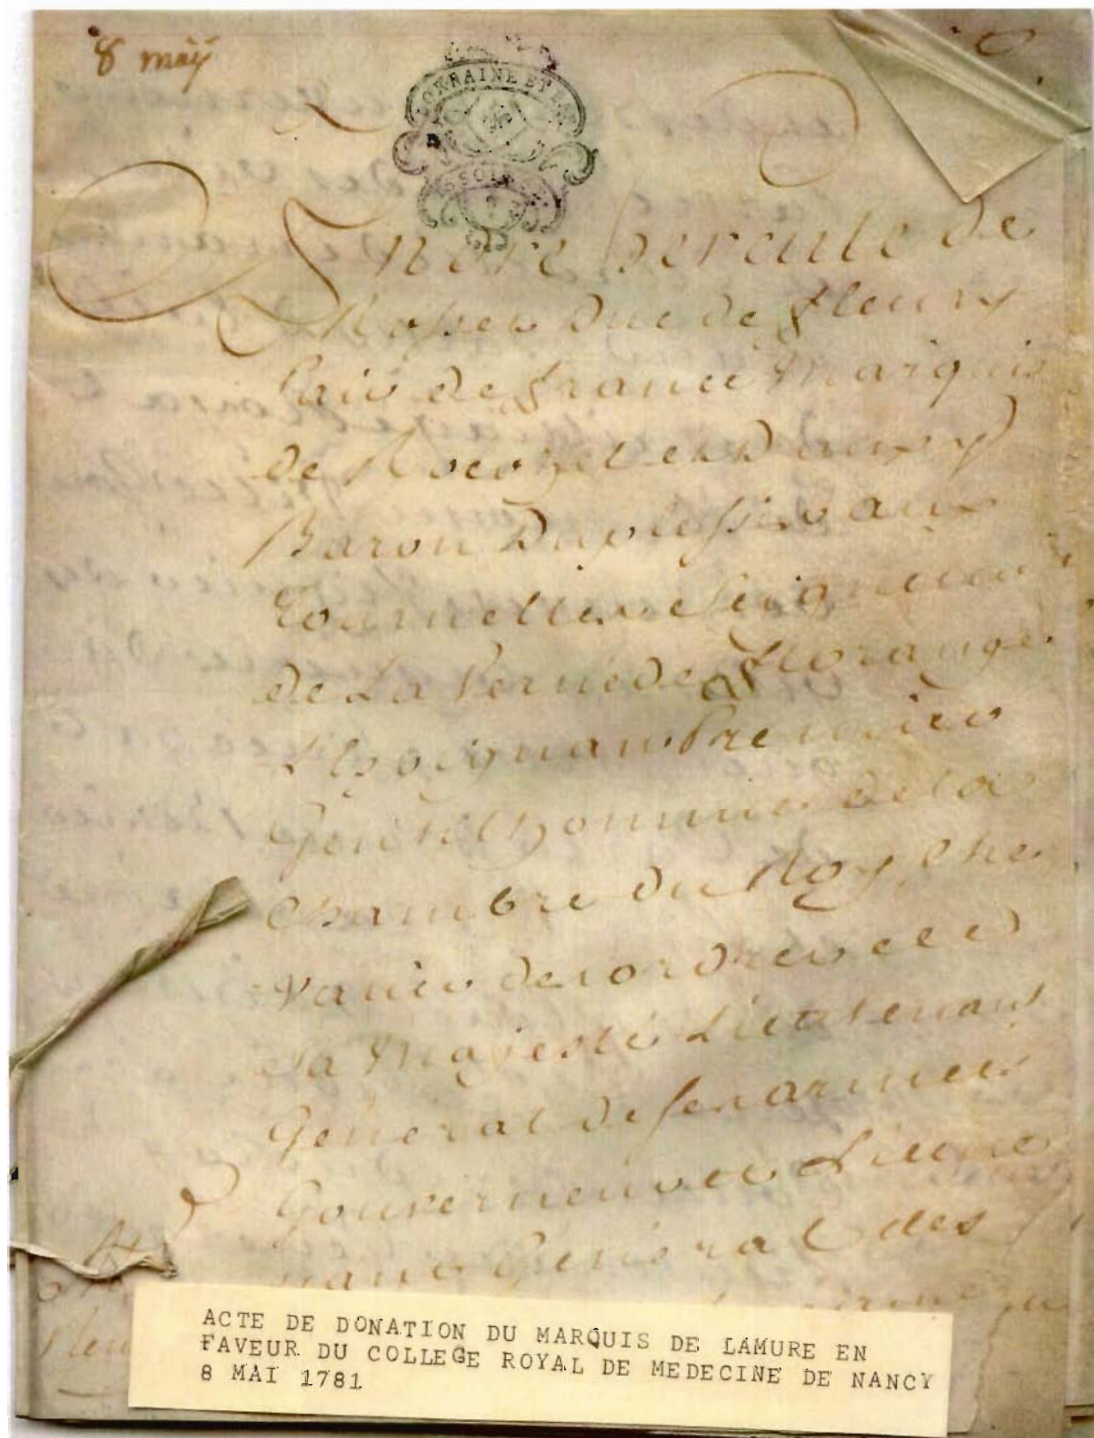 8 maÿ
LORRAINE ET
André hercule de
Rosset Duc de fleury
Pair de france Marquis
de Rocozel et Duc
Baron Duplessis aux
Tournelles et Seigneur
de La Vernede florange
Premier
Gentilhomme de la
chambre du Roy, Che
valier des ordres de
Sa Majesté Lieutenant
Général de ses armées
Gouverneur et Lieute
nant Général des
ACTE DE DONATION DU MARQUIS DE LAMURE EN
FAVEUR DU COLLEGE ROYAL DE MEDECINE DE NANCY
8 MAI 1781